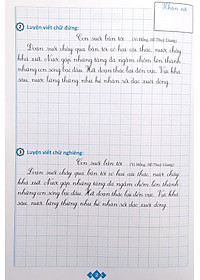 Nhận xét
2 Luyện viết chữ đứng:
Con suối bản tôi (Vi Hồng, Hồ Thuỷ Giang)
Đoạn suối chảy qua bản tôi có hai cái thác, nước chảy
khá xiết. Nước gặp những tảng đá ngầm chồm lên thành
những con sóng bạc đầu. Hết đoạn thác lại đến vực. Vực khá
sâu, nước lặng thỏng như kẻ nhàn rỗi dạo xuôi dòng.
3 Luyện viết chữ nghiêng:
Con suối bản tôi (Vi Hồng, Hồ Thuỷ Giang)
Đoạn suối chảy qua bản tôi có hai cái thác, nước chảy
khá xiết. Nước gặp những tảng đá ngầm chồm lên thành
những con sóng bạc đầu. Hết đoạn thác lại đến vực. Vực khá
sâu, nước lặng thỏng như kẻ nhàn rỗi dạo xuôi dòng.